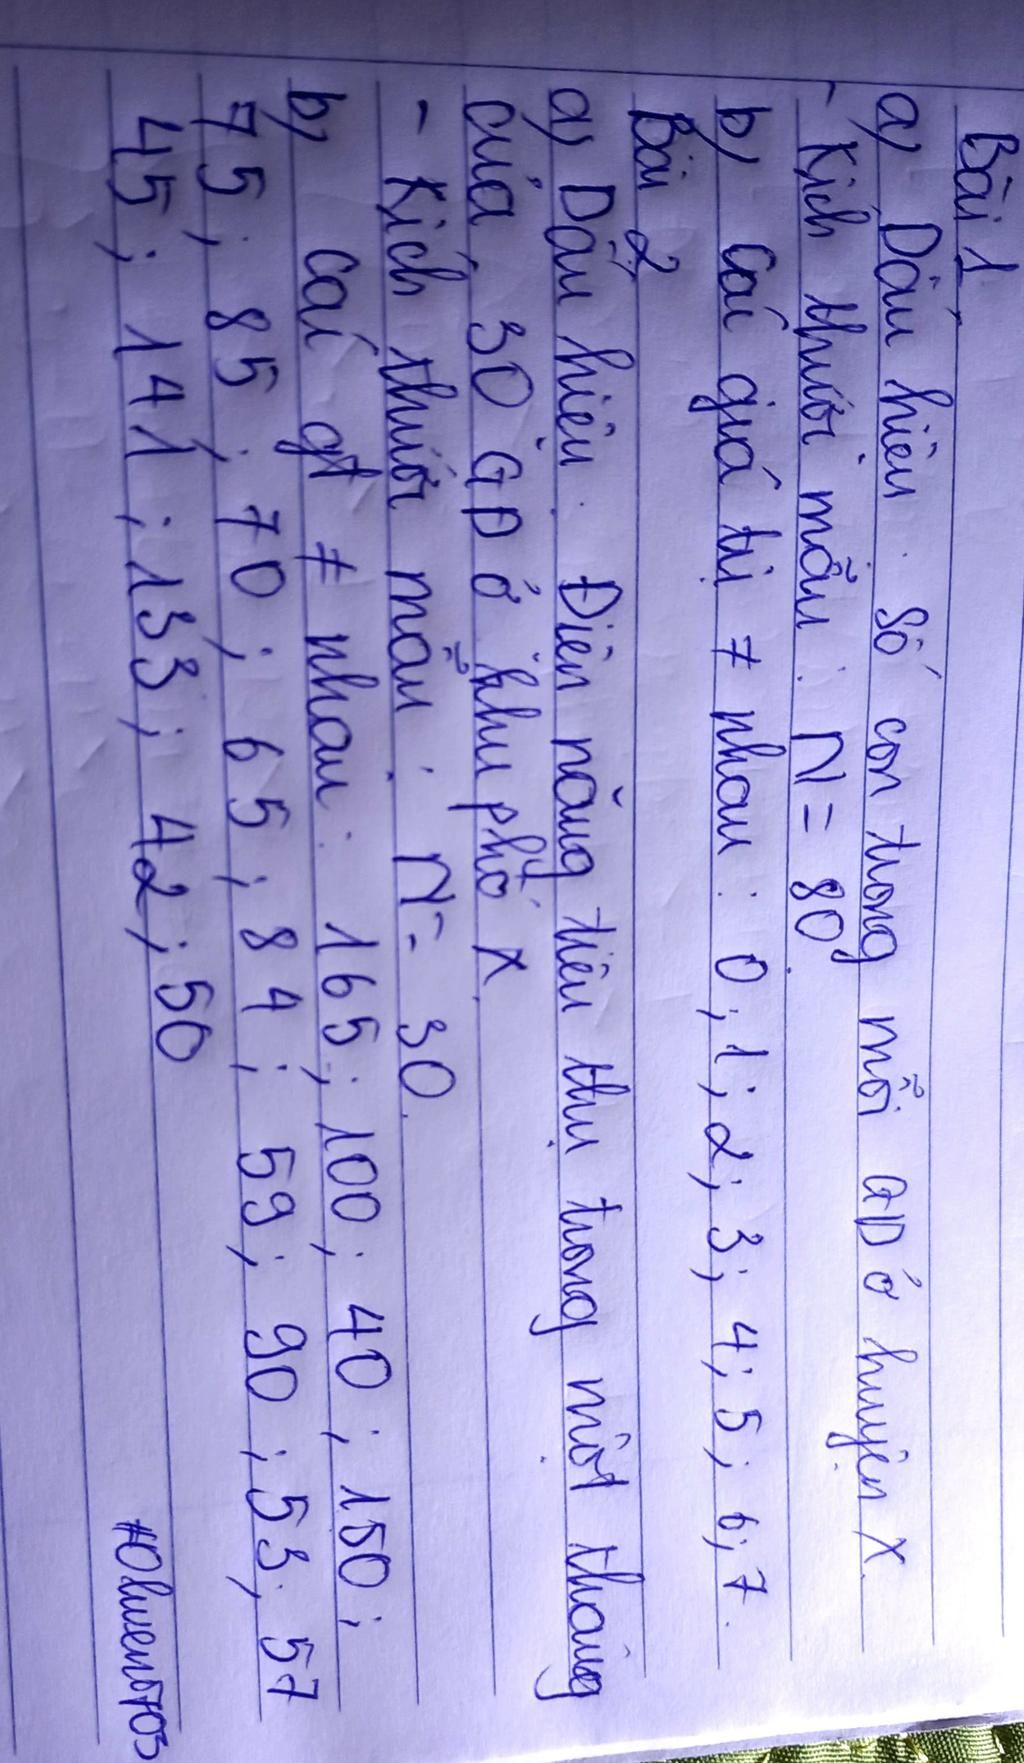 Bài 1
a) Dấu hiệu: Số con trong mỗi GĐ ở huyện X.
- Kích thước mẫu: N = 80.
b) Các giá trị ≠ nhau: 0; 1; 2; 3; 4; 5; 6; 7.
Bài 2
a) Dấu hiệu: Điện năng tiêu thụ trong một tháng
của 30 GĐ ở khu phố X.
- Kích thước mẫu: N = 30.
b) Các gt ≠ nhau: 165; 100; 40; 150;
75; 85; 70; 65; 84; 59; 90; 53; 57
45; 141; 133; 42; 50